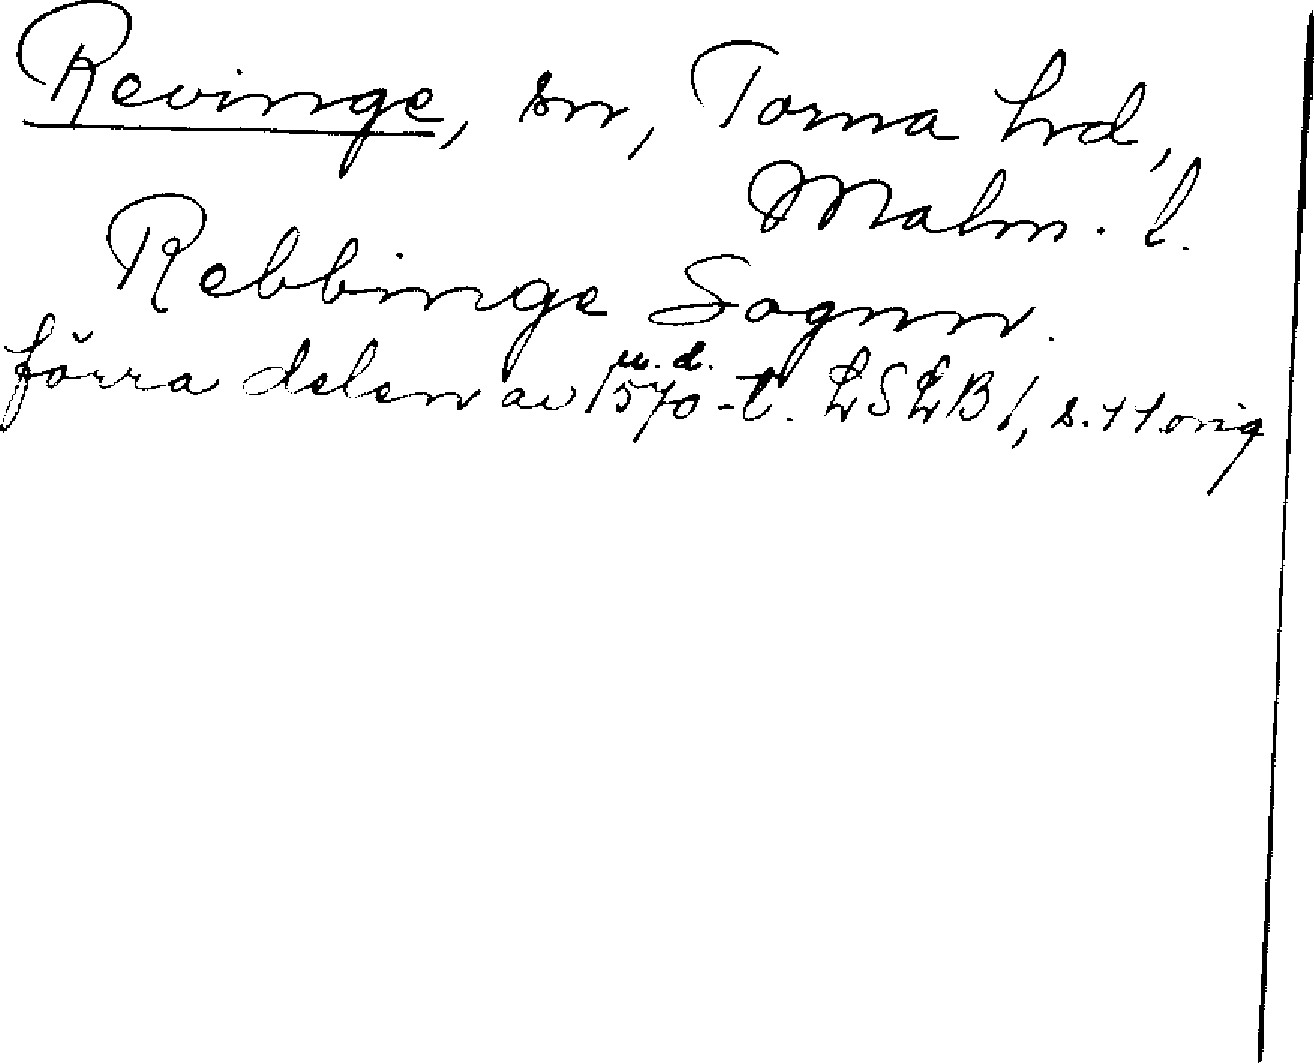 Revinge, sn, Torna hrd,
Malm. l.
Rebbinge Sognn.
u. d.
förra delen av 1570-t. LSLB 1, s. 11 orig